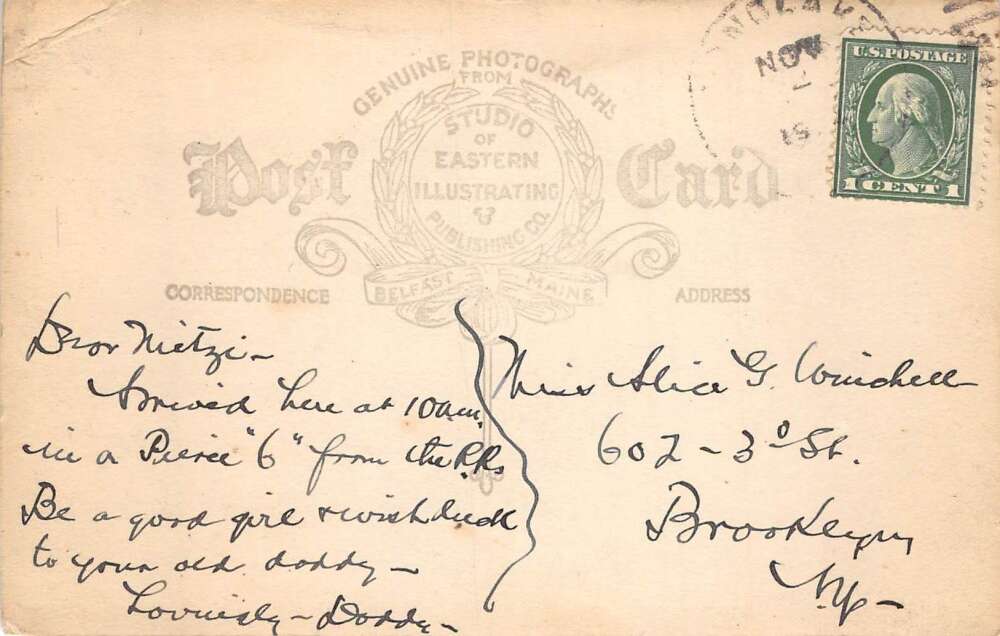 GENUINE PHOTOGRAPHS
FROM
STUDIO
OF
EASTERN
ILLUSTRATING
&
PUBLISHING CO.
Post Card
BELFAST MAINE
CORRESPONDENCE
ADDRESS
NOV
U.S. POSTAGE
1 CENT 1
Dear Mitzi –
Arrived here at 10 a.m.
in a Pierce "6" from the R.R.
Be a good girl & wish luck
to your old daddy –
Lovingly – Daddy –
Miss Alice G. Winchell
602 – 3d St.
Brooklyn
N.Y. –